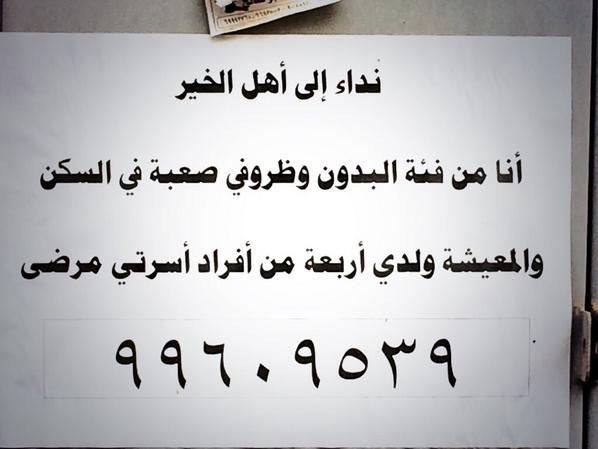 نداء إلى أهل الخير
أنا من فئة البدون وظروفي صعبة في السكن
والمعيشة ولدي أربعة من أفراد أسرتي مرضى
٩٩٦٠٩٥٣٩